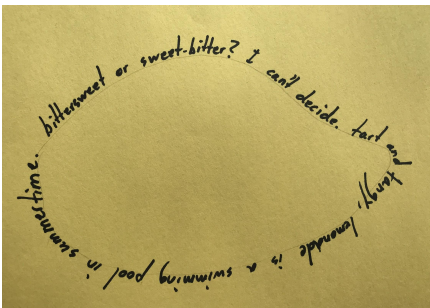 bittersweet or sweet-bitter? I can't decide. tart and tangy, lemonade is a swimming pool in summertime.